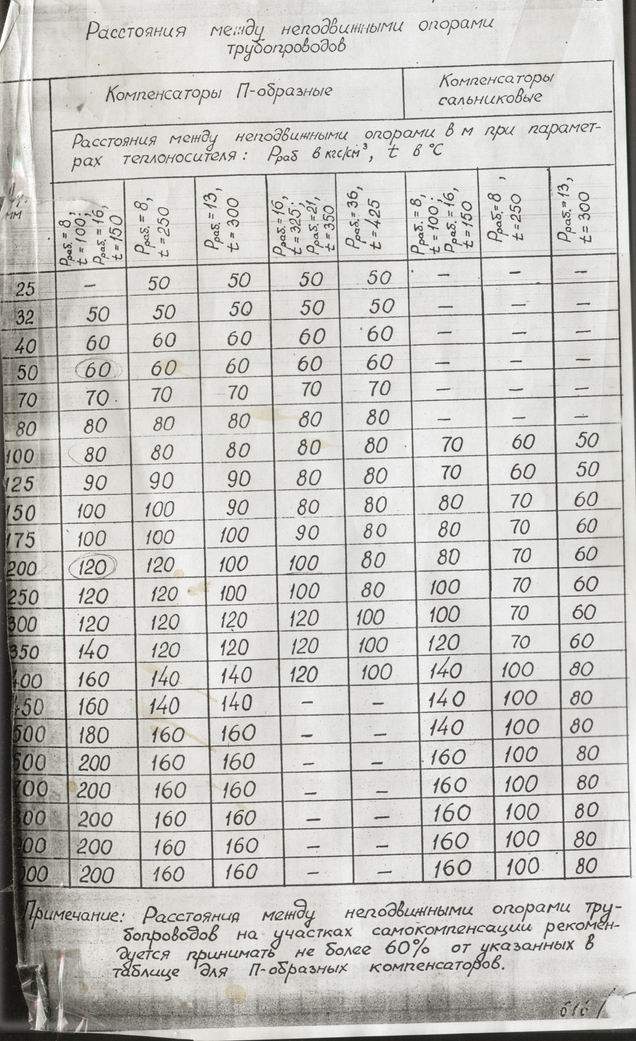 Расстояния между неподвижными опорами
трубопроводов
Компенсаторы П-образные
Компенсаторы
сальниковые
Расстояния между неподвижными опорами в м при парамет-
рах теплоносителя: Рраб в кгс/см³, t в °С
мм
Рраб.=8, t=100; Рраб.=16, t=150
Рраб.=8, t=250
Рраб.=13, t=300
Рраб.=16, t=325; Рраб.=21, t=350
Рраб.=36, t=425
Рраб.=8, t=100; Рраб.=16, t=150
Рраб.=8, t=250
Рраб.=13, t=300
25 – 50 50 50 50 – – –
32 50 50 50 50 50 – – –
40 60 60 60 60 60 – – –
50 60 60 60 60 60 – – –
70 70 70 70 70 70 – – –
80 80 80 80 80 80 – – –
100 80 80 80 80 80 70 60 50
125 90 90 90 80 80 70 60 50
150 100 100 90 80 80 80 70 60
175 100 100 100 90 80 80 70 60
200 120 120 100 100 80 80 70 60
250 120 120 100 100 80 100 70 60
300 120 120 120 120 100 100 70 60
350 140 120 120 120 100 120 70 60
400 160 140 140 120 100 140 100 80
450 160 140 140 – – 140 100 80
500 180 160 160 – – 140 100 80
600 200 160 160 – – 160 100 80
700 200 160 160 – – 160 100 80
800 200 160 160 – – 160 100 80
900 200 160 160 – – 160 100 80
000 200 160 160 – – 160 100 80
Примечание: Расстояния между неподвижными опорами тру-
бопроводов на участках самокомпенсации рекомен-
дуется принимать не более 60% от указанных в
таблице для П-образных компенсаторов.